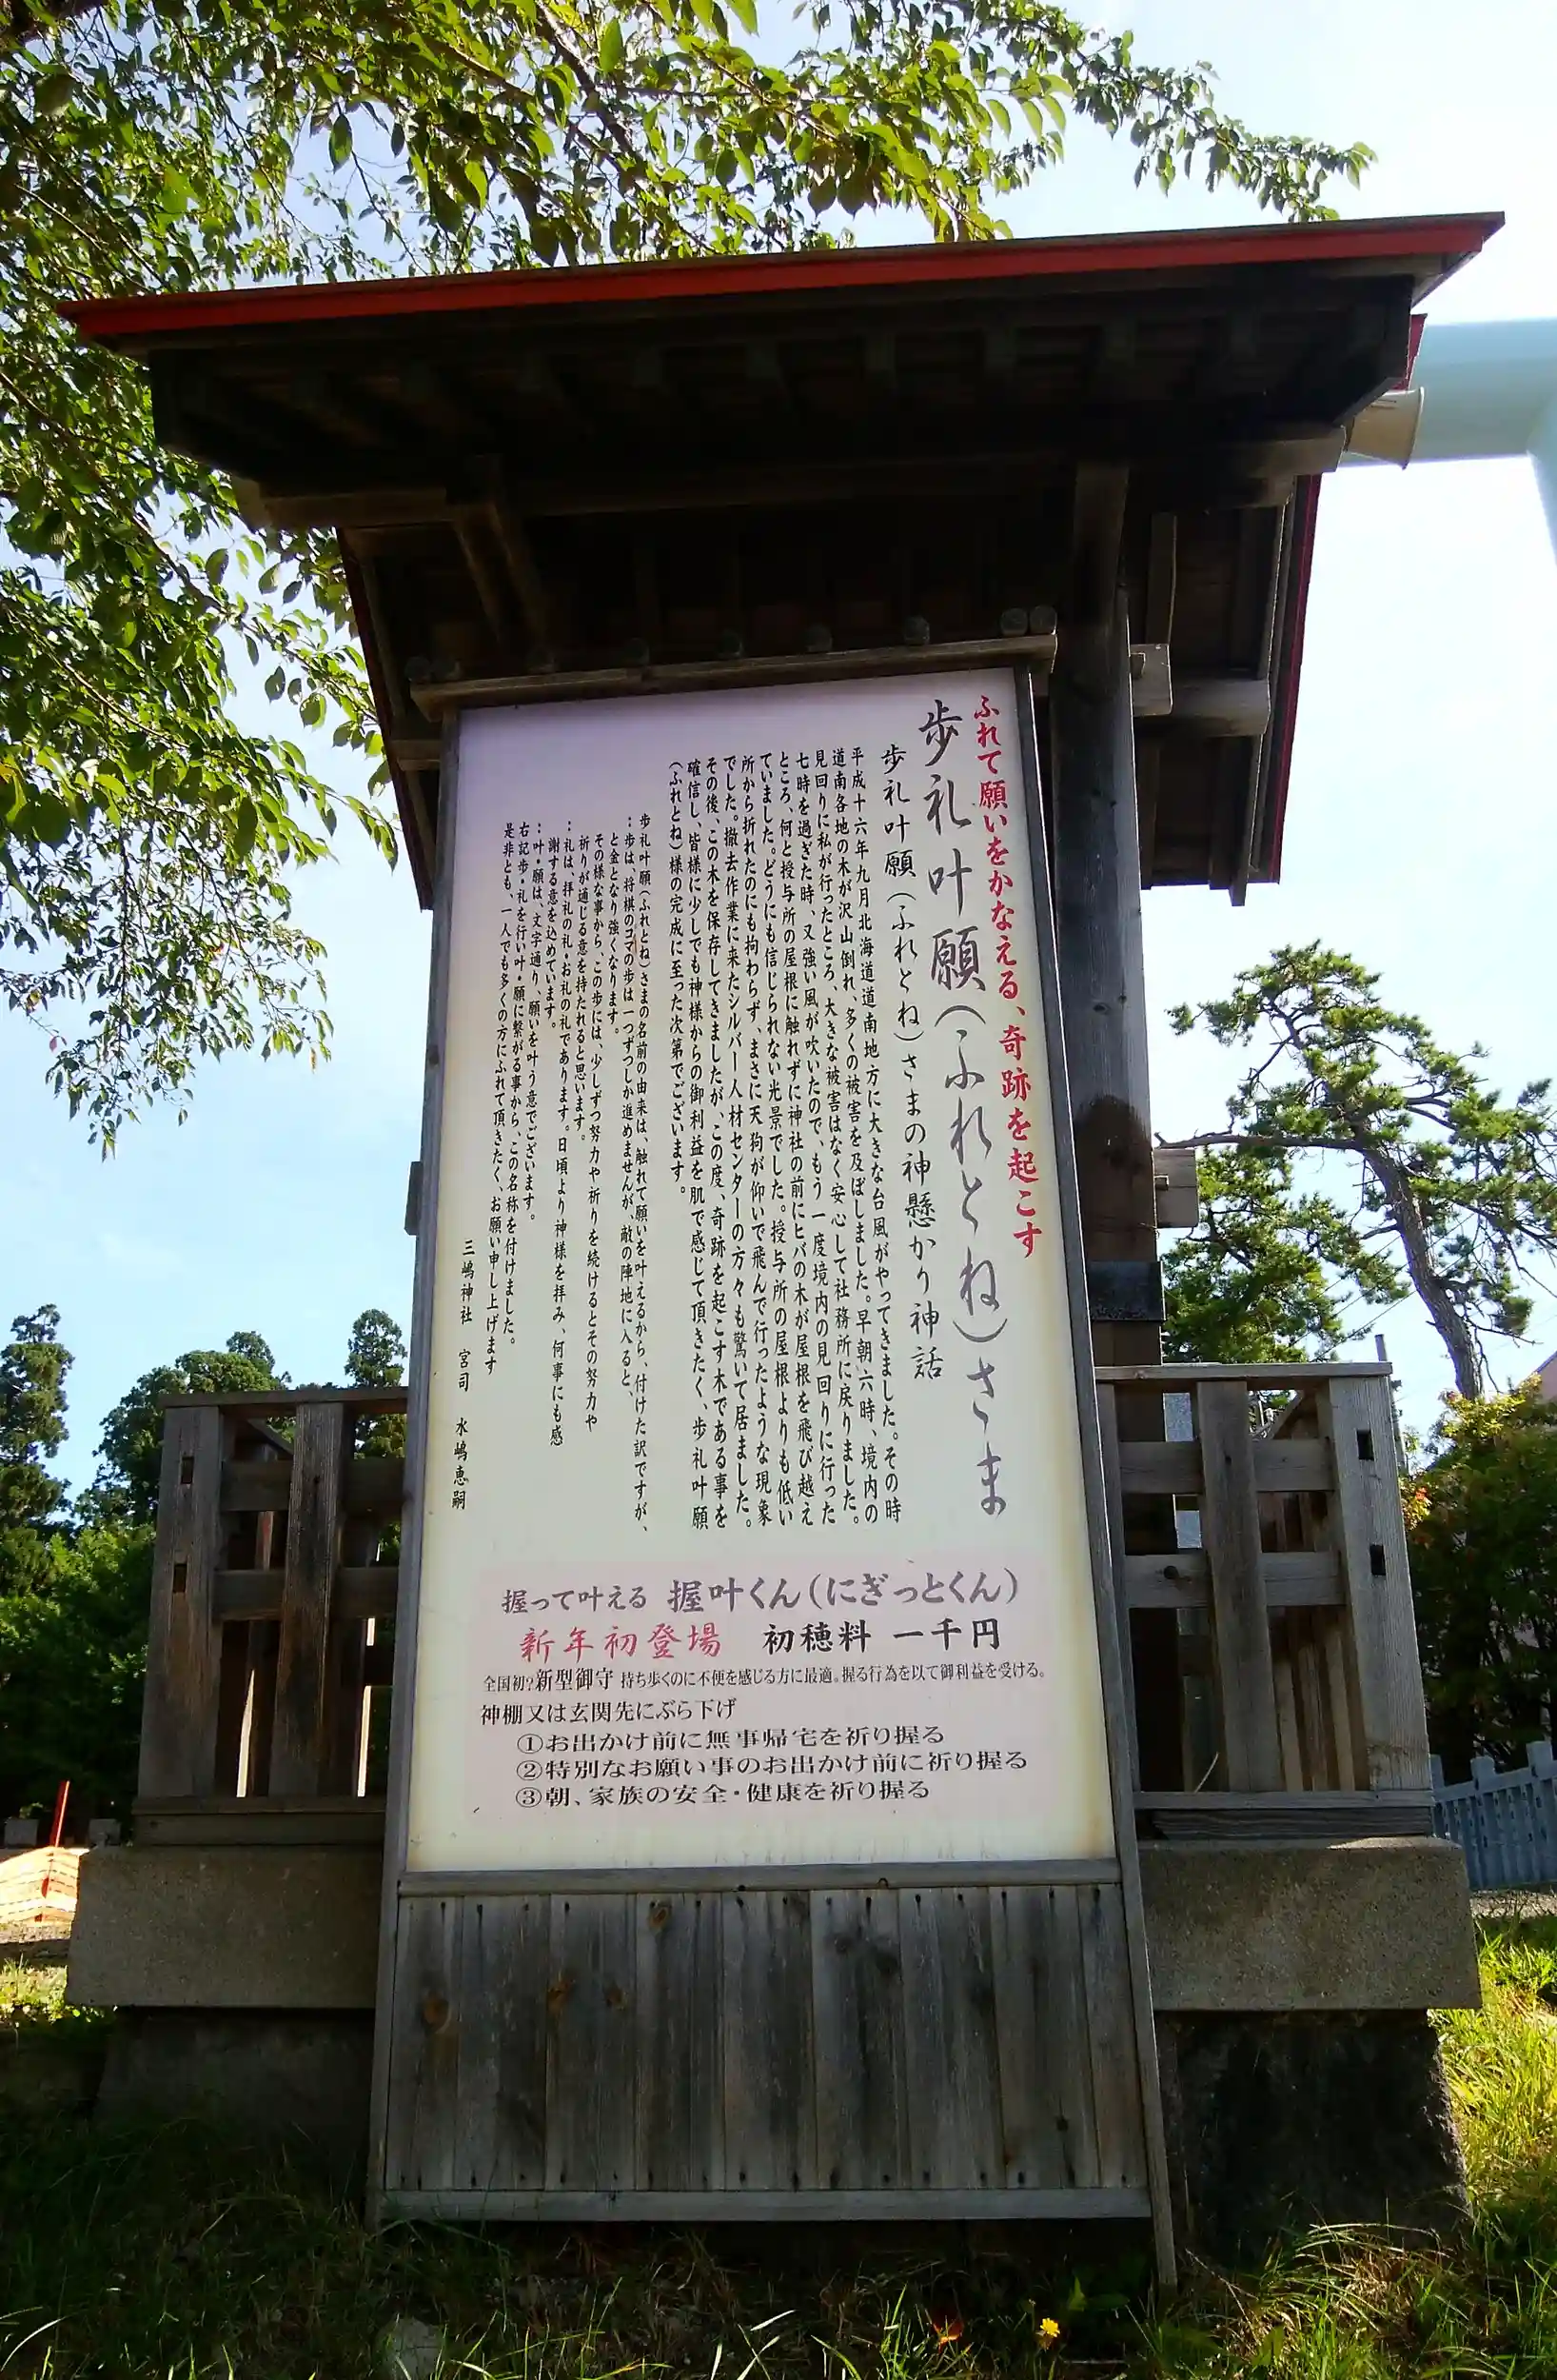 ふれて願いをかなえる、奇跡を起こす
歩礼叶願(ふれとね)さま
歩礼叶願(ふれとね)さまの神懸かり神話
平成十六年九月北海道道南地方に大きな台風がやってきました。その時
道南各地の木が沢山倒れ、多くの被害を及ぼしました。早朝六時、境内の
見回りに私が行ったところ、大きな被害はなく安心して社務所に戻りました。
七時を過ぎた時、又強い風が吹いたので、もう一度境内の見回りに行った
ところ、何と授与所の屋根に触れずに神社の前にヒバの木が屋根を飛び越え
ていました。どうにも信じられない光景でした。授与所の屋根よりも低い
所から折れたのにも拘わらず、まさに天狗が仰いで飛んで行ったような現象
でした。撤去作業に来たシルバー人材センターの方々も驚いて居ました。
その後、この木を保存してきましたが、この度、奇跡を起こす木である事を
確信し、皆様に少しでも神様からの御利益を肌で感じて頂きたく、歩礼叶願
(ふれとね)様の完成に至った次第でございます。
歩礼叶願(ふれとね)さまの名前の由来は、触れて願いを叶えるから、付けた訳ですが、
：歩は、将棋のコマの歩は一つずつしか進めませんが、敵の陣地に入ると、
と金となり強くなります。
その様な事から、この歩には、少しずつ努力や祈りを続けるとその努力や
祈りが通じる意を持たれると思います。
：礼は、拝礼の礼・お礼の礼であります。日頃より神様を拝み、何事にも感
謝する意を込めています。
：叶・願は、文字通り、願いを叶う意でございます。
右記歩・礼を行い叶・願に繋がる事から、この名称を付けました。
是非とも、一人でも多くの方にふれて頂きたく、お願い申し上げます
三嶋神社 宮司 水嶋恵嗣
握って叶える 握叶くん(にぎっとくん)
新年初登場 初穂料 一千円
全国初?新型御守 持ち歩くのに不便を感じる方に最適。握る行為を以て御利益を受ける。
神棚又は玄関先にぶら下げ
①お出かけ前に無事帰宅を祈り握る
②特別なお願い事のお出かけ前に祈り握る
③朝、家族の安全・健康を祈り握る